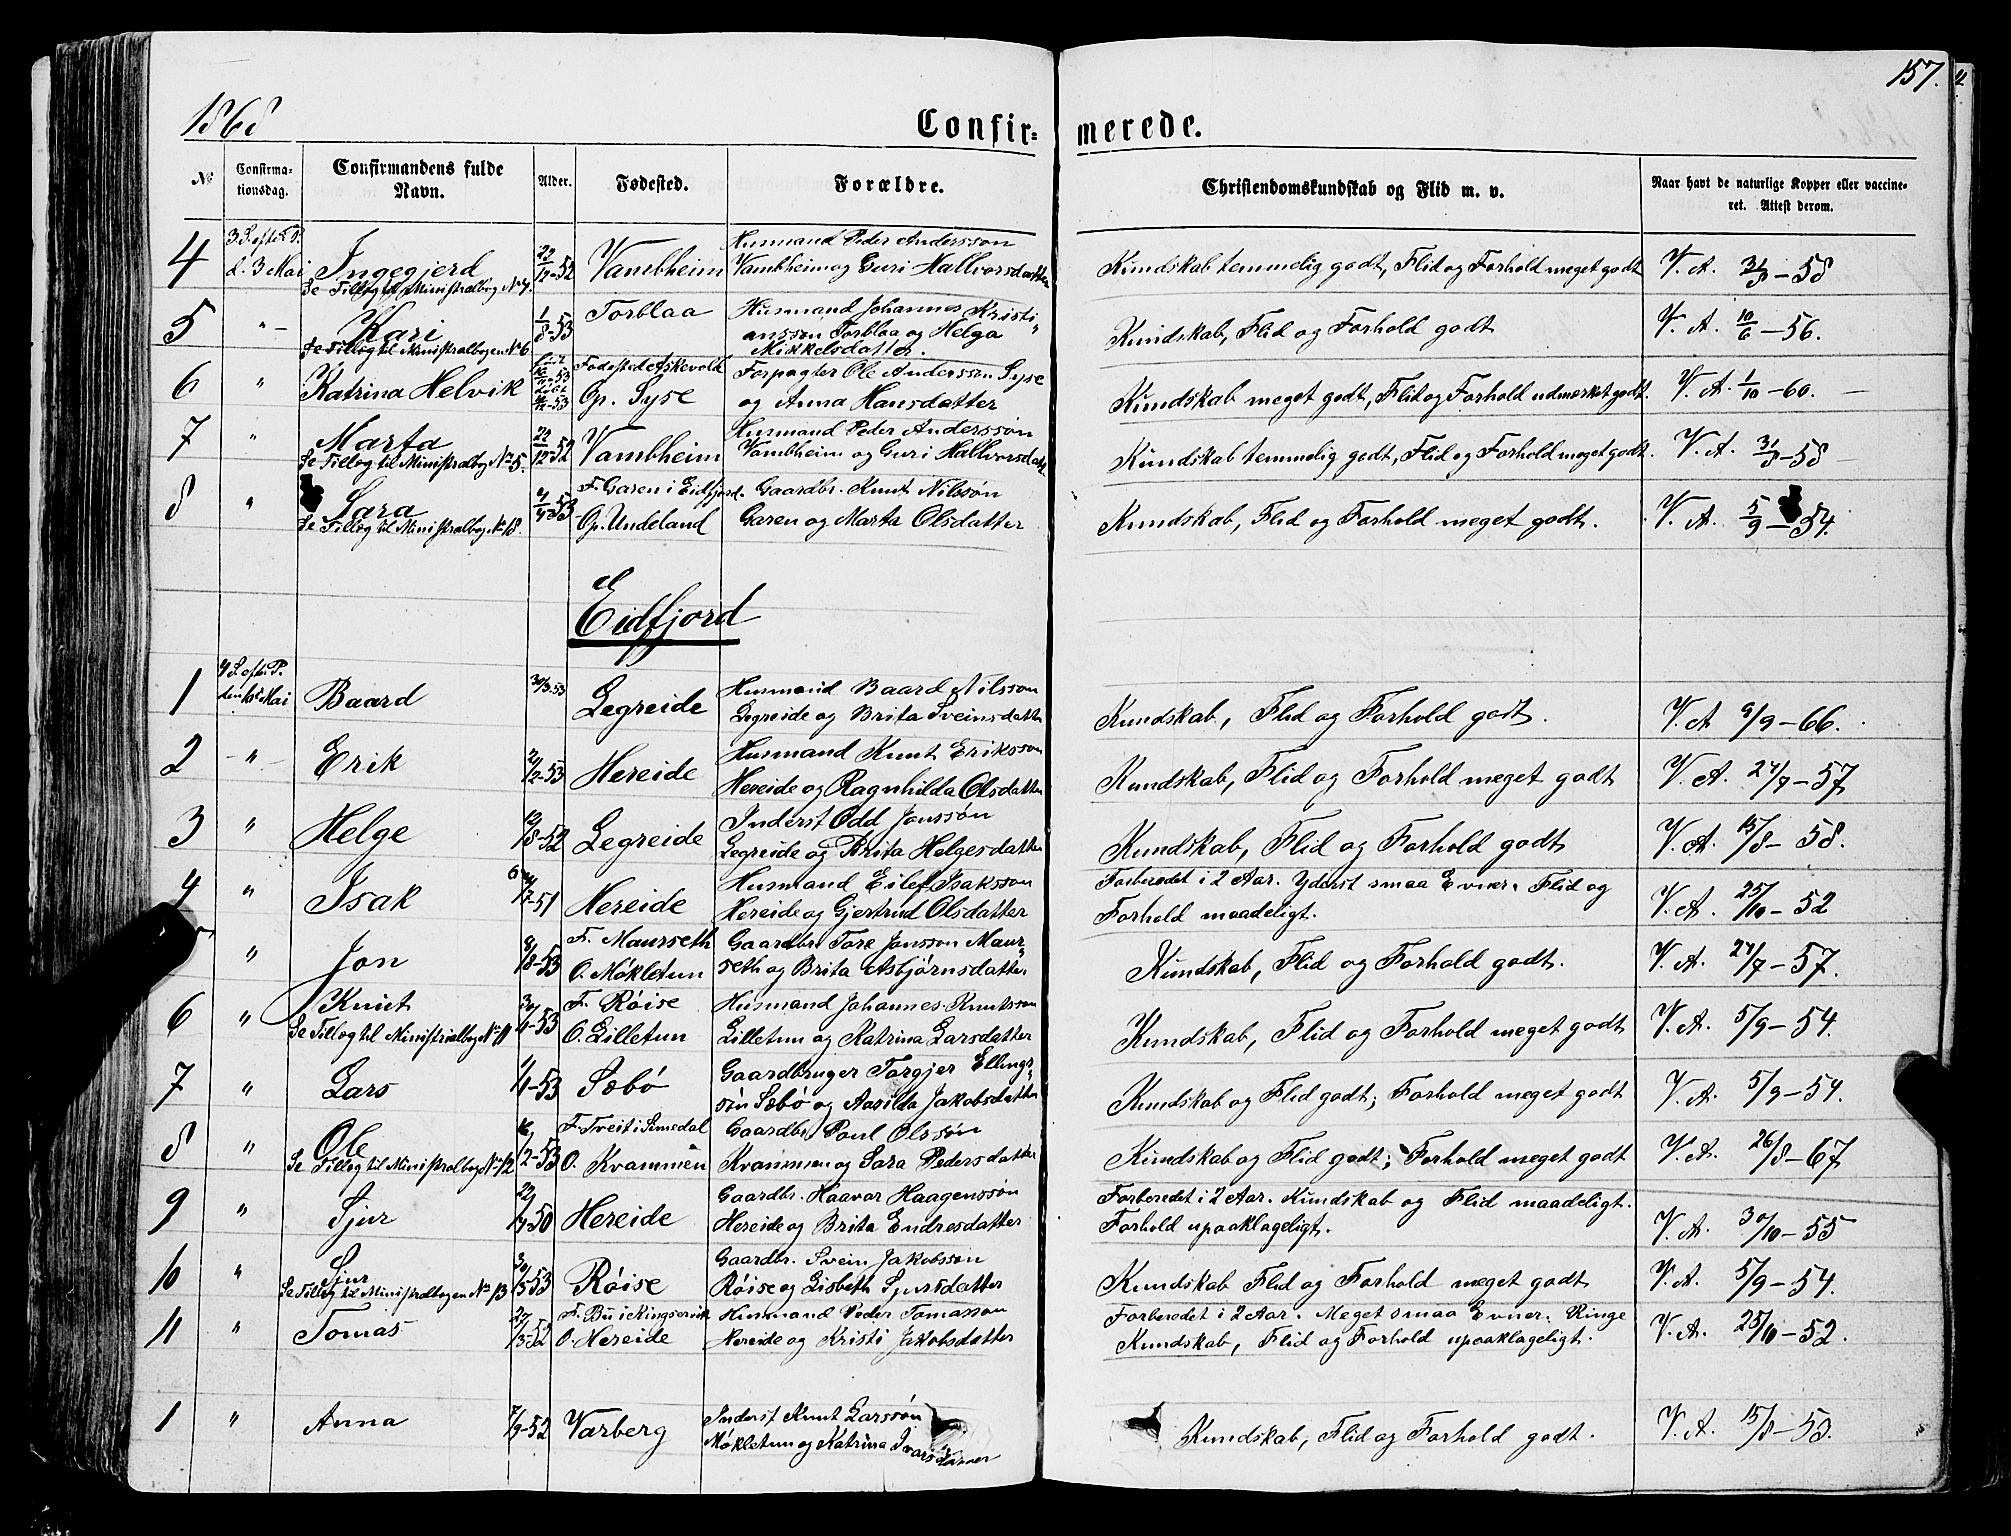 157.
1868
Confir= merede.
№ Confirma-tionsdag. Confirmandens fulde Navn. Alder. Fødested. Forældre. Christendomskundskab og Flid m. v. Naar havt de naturlige Kopper eller vaccine-ret. Attest derom.
3 S. efter P. Husmand Peder Anderssøn
4 d. 3 Mai Ingegjerd 22/12-52 Vambheim Vambheim og Guri Hallvorsdatter Kundskab temmelig godt, Flid og Forhold meget godt V. A. 31/8-58
Se Tillæg til Ministralbog No 4.
5 " Kari 1/8-53 Torblaa Husmand Johannes Kristi- Kundskab, Flid og Forhold godt V. A. 10/6-56.
ansson Torblaa og Helga
Se Tillæg til Ministralbogen No 6. Mikkelsdatter.
Fødested Askevold Forpagter Ole Anderssøn Syse
6 " Katrina Helvik Op. Syse og Anna Hansdatter Kundskab meget godt, Flid og Forhold udmærket godt. V. A. 1/10-60.
Husmand Peder Anderssøn
7 " Marta 22/12-52 Vambheim Vambheim og Guri Hallvorsdatt Kundskab temmelig godt, Flid og Forhold meget godt. V. A. 31/8-58
Se Tillæg til Ministralbog No 5.
F. Garen i Eidfjord. Gaardbr. Knut Nilssøn
8 " Sara 4/4-53 Op. Undeland Garen og Marta Olsdatter Kundskab, Flid og Forhold meget godt. V. A. 5/9-54.
Se Tillæg til Ministralbog No 8.
Eidfjord
4 S. efter P. Husmand Baard Nilsson
1 den 10de Mai Baard 30/3-53 Legreide Legreide og Brita Sveinsdatter Kundskab, Flid og Forhold godt. V. A 9/9-66.
Husmand Knut Eriksson
2 " Erik 2/2-53 Hereide Hereide og Ragnhilda Olsdatter Kundskab, Flid og Forhold meget godt V. A. 24/7-57
Inderst Odd Jonssøn
3 " Helge /8-52 Legreide Legreide og Brita Helgesdatter Kundskab, Flid og Forhold godt V. A. 15/8-58.
Husmand Eilef Isaksson Forberedet i 2 Aar. Yderst smaa Evner. Flid og
4 " Isak /7-51 Hereide Hereide og Gjertrud Olsdatter Forhold maadeligt. V. A. 25/10-52
F. Maurseth Gaardbr. Tore Jonsson Maur-
" Jon 8/8-53 O. Møkletun seth og Brita Asbjørnsdatter Kundskab, Flid og Forhold godt. V. A. 24/7-57.
Knut F. Røise Husmand Johannes Knutsson
6 " Se Tillæg til Ministrialbog No 11 30/4-53 O. Lilletun Lilletun og Katrina Larsdatter Kundskab, Flid og Forhold meget godt V. A. 5/9-54.
Gaardbruger Torgjer Ellings-
7 " Lars 1/4-53 Sæbø søn Sæbø og Aasilda Jakobsdatter Kundskab og Flid godt; Forhold meget godt V. A. 5/9-54.
Ole F. Tveit i Simedal Gaardbr. Poul Olssøn
8 " Se Tillæg til Ministralbog No 12 16/2-53 O. Kvammen Kvammen og Sara Pedersdatter Kundskab og Flid godt; Forhold meget godt V. A. 26/8-67
Gaardbr. Haavar Haagenssøn Forberedet i 2 Aar. Kundskab og Flid maadeligt.
9 " Sjur -50 Hereide Hereide og Brita Endresdatter Forhold upaaklageligt. V. A. 30/10-55
Gaardbr. Svein Jakobsson
10 " Sjur 30/5-53 Røise Røise og Lisbeth Sjursdatter Kundskab Flid og Forhold meget godt V. A. 5/9-54.
Se Tillæg til Ministralbogen No 13
F. Bu i Kingservik Husmand Peder Tomasson Forberedet i 2 Aar. Meget smaa Evner. Ringe
11 " Tomas 22/3-52 O. Hereide Hereide og Kristi Jakobsdatter Kundskab, Flid og Forhold upaaklageligt. V. A. 25/10-52.
Inderst Knut Larssøn
1 " Anna 7/9-52 Varberg Møkletun og Katrina Ivarsdatter Kundskab, Flid og Forhold godt. V. A. 15/8-53.